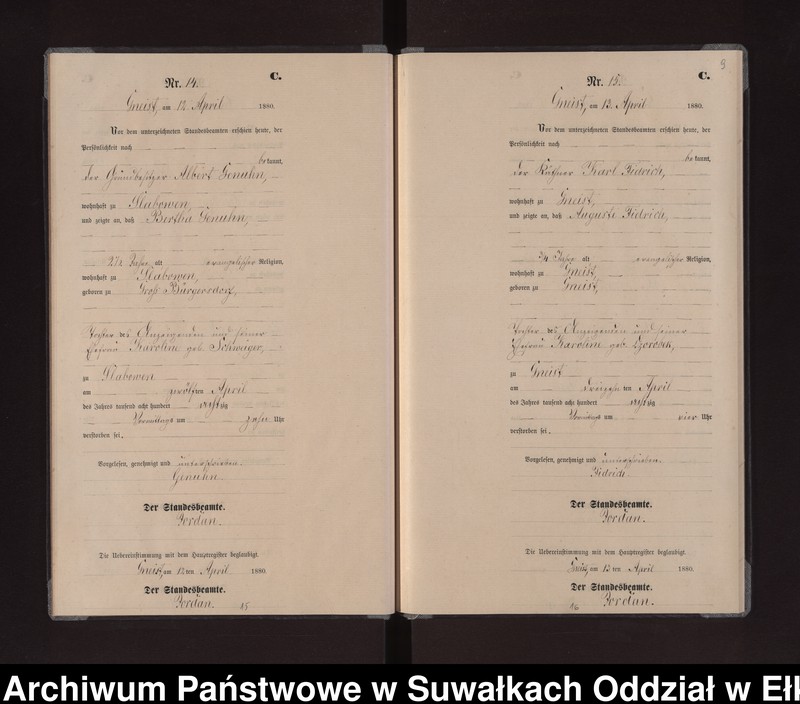 Nr. 14.
C.
Gneist, am 12. April 1880.
Vor dem unterzeichneten Standesbeamten erschien heute, der
Persönlichkeit nach
bekannt,
der Grundbesitzer Albert Genuhn,
wohnhaft zu Slabowen,
und zeigte an, daß Bertha Genuhn,
Jahre alt evangelischer Religion,
wohnhaft zu Slabowen,
geboren zu Groß Bürgersdorf,
Tochter des Anzeigenden und seiner
Ehefrau Karoline geb. Schweiger,
zu Slabowen
am zwölften April
des Jahres tausend acht hundert achtzig
Vormittags um zehn Uhr
verstorben sei.
Vorgelesen, genehmigt und unterschrieben.
Genuhn.
Der Standesbeamte.
Jordan.
Die Uebereinstimmung mit dem Hauptregister beglaubigt.
Gneist, am 12ten April 1880.
Der Standesbeamte.
Jordan.
15
9
Nr. 15.
C.
Gneist, am 13. April 1880.
Vor dem unterzeichneten Standesbeamten erschien heute, der
Persönlichkeit nach
bekannt,
der Käthner Karl Fidrich,
wohnhaft zu Gneist,
und zeigte an, daß Auguste Fidrich,
3/4 Jahre alt evangelischer Religion,
wohnhaft zu Gneist,
geboren zu Gneist,
Tochter des Anzeigenden und seiner
Ehefrau Karoline geb.
zu Gneist
am dreizehnten April
des Jahres tausend acht hundert achtzig
Vormittags um vier Uhr
verstorben sei.
Vorgelesen, genehmigt und unterschrieben.
Fidrich.
Der Standesbeamte.
Jordan.
Die Uebereinstimmung mit dem Hauptregister beglaubigt.
Gneist, am 13ten April 1880.
Der Standesbeamte.
Jordan.
16
Archiwum Państwowe w Suwałkach Oddział w Ełk